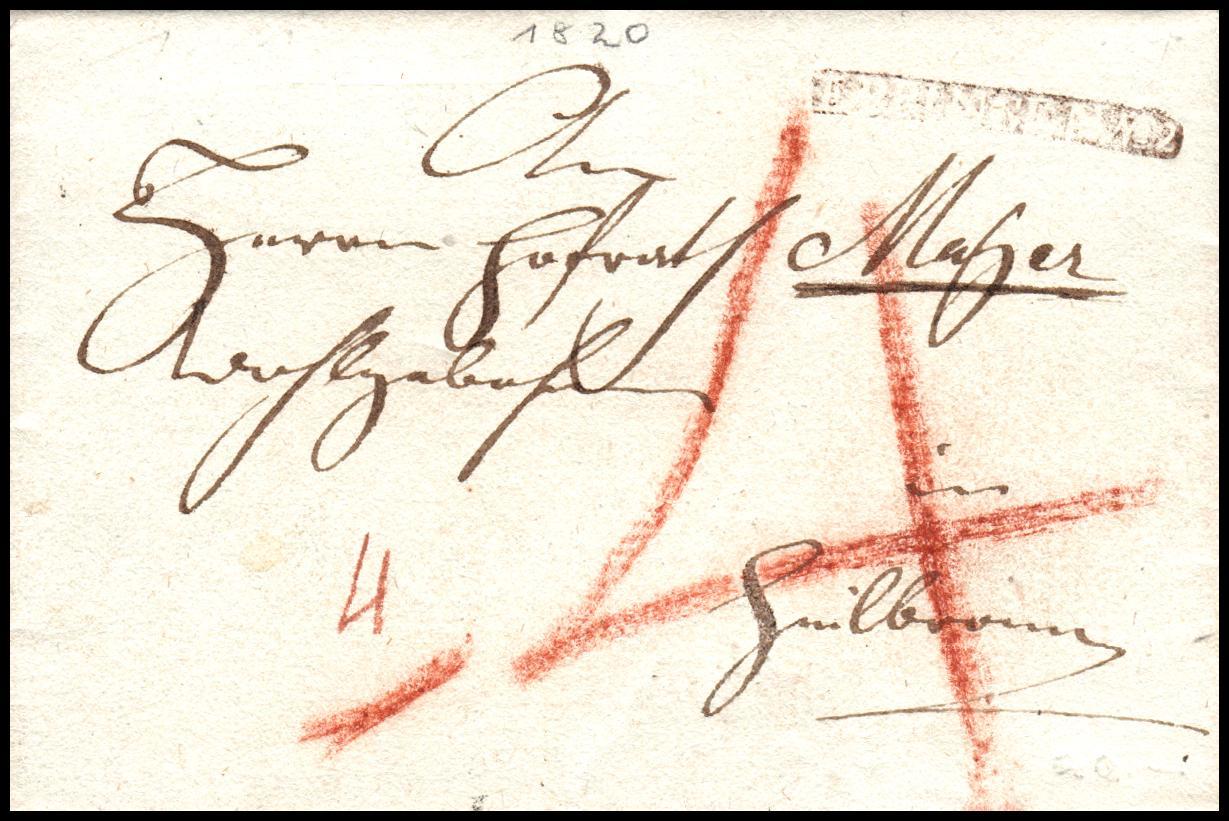 1820
An
Herrn Hofrath Mayer
Wohlgebohren
in
Heilbronn
4
4